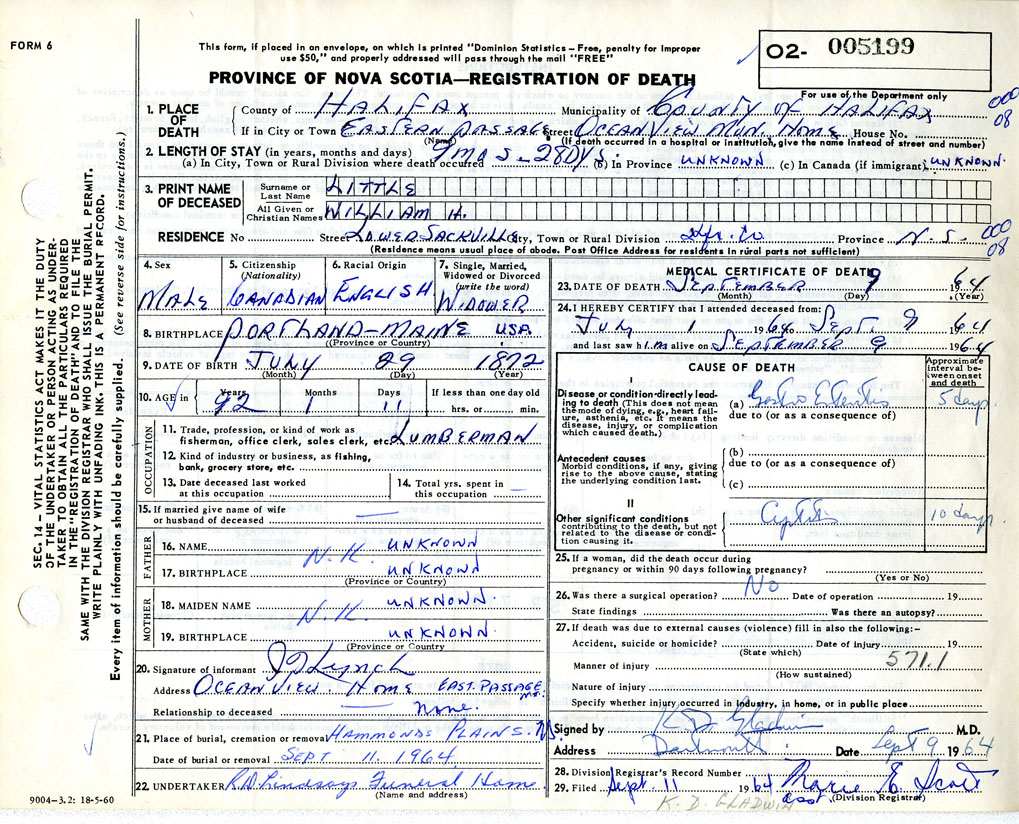 FORM 6
This form, if placed in an envelope, on which is printed "Dominion Statistics – Free, penalty for improper
use $50," and properly addressed will pass through the mail "FREE"
O2- 005199
For use of the Department only
PROVINCE OF NOVA SCOTIA—REGISTRATION OF DEATH
1. PLACE OF DEATH
County of HALIFAX Municipality of COUNTY OF HALIFAX 000 08
If in City or Town EASTERN PASSAGE Street OCEAN VIEW MUN. HOME House No.
(Name) (If death occurred in a hospital or institution, give the name instead of street and number)
2. LENGTH OF STAY (in years, months and days)
(a) In City, Town or Rural Division where death occurred 9 MOS - 28 DYS. (b) In Province UNKNOWN (c) In Canada (if immigrant) UNKNOWN.
3. PRINT NAME OF DECEASED
Surname or Last Name LITTLE
All Given or Christian Names WILLIAM H.
RESIDENCE No Street LOWER SACKVILLE City, Town or Rural Division Hfx. Co Province N.S. 000 08
(Residence means usual place of abode. Post Office Address for residents in rural parts not sufficient)
4. Sex MALE
5. Citizenship (Nationality) CANADIAN
6. Racial Origin ENGLISH
7. Single, Married, Widowed or Divorced (write the word) WIDOWER
8. BIRTHPLACE PORTLAND-MAINE U.S.A.
(Province or Country)
9. DATE OF BIRTH JULY 29 1872
(Month) (Day) (Year)
10. AGE in Years 92 Months 1 Days 11 If less than one day old
hrs. or min.
OCCUPATION
11. Trade, profession, or kind of work as
fisherman, office clerk, sales clerk, etc. LUMBERMAN
12. Kind of industry or business, as fishing,
bank, grocery store, etc.
13. Date deceased last worked
at this occupation
14. Total yrs. spent in
this occupation —
15. If married give name of wife
or husband of deceased —
FATHER
16. NAME N.K. UNKNOWN
17. BIRTHPLACE UNKNOWN
(Province or Country)
MOTHER
18. MAIDEN NAME N.K. UNKNOWN.
19. BIRTHPLACE UNKNOWN.
(Province or Country
20. Signature of informant Lynch
Address OCEAN VIEW. HOME EAST. PASSAGE
Relationship to deceased None.
21. Place of burial, cremation or removal HAMMONDS PLAINS.
Date of burial or removal SEPT 11. 1964
22. UNDERTAKER R.D. Lindsays Funeral Home.
(Name and address)
9004-3.2: 18-5-60
MEDICAL CERTIFICATE OF DEATH
23. DATE OF DEATH SEPTEMBER 9 1964
(Month) (Day) (Year)
24. I HEREBY CERTIFY that I attended deceased from:
JULY 1 1964 to SEPT. 9 64
and last saw him alive on SEPTEMBER 9 1964
CAUSE OF DEATH
Approximate interval between onset and death
I
Disease or condition directly leading to death (This does not mean the mode of dying, e.g., heart failure, asthenia, etc. It means the disease, injury, or complication which caused death.)
(a) Gastro Enteritis 5 days
due to (or as a consequence of)
Antecedent causes
Morbid conditions, if any, giving rise to the above cause, stating the underlying condition last.
(b)
due to (or as a consequence of)
(c)
II
Other significant conditions
contributing to the death, but not related to the disease or condition causing it.
Cystitis 10 days.
25. If a woman, did the death occur during
pregnancy or within 90 days following pregnancy?
(Yes or No)
26. Was there a surgical operation? No Date of operation 19
State findings Was there an autopsy?
27. If death was due to external causes (violence) fill in also the following:–
Accident, suicide or homicide? Date of injury 19
(State which) 571.1
Manner of injury
(How sustained)
Nature of injury
Specify whether injury occurred in industry, in home, or in public place
Signed by K D Gladwin M.D.
Address Dartmouth. Date Sept 9 1964
28. Division Registrar's Record Number
29. Filed Sept. 11 1964 Marie E Scott
asst. (Division Registrar)
K. D. GLADWIN
SEC. 14 – VITAL STATISTICS ACT MAKES IT THE DUTY
OF THE UNDERTAKER OR PERSON ACTING AS UNDER-
TAKER TO OBTAIN ALL THE PARTICULARS REQUIRED
IN THE "REGISTRATION OF DEATH" AND TO FILE THE
SAME WITH THE DIVISION REGISTRAR WHO SHALL ISSUE THE BURIAL PERMIT.
WRITE PLAINLY WITH UNFADING INK. THIS IS A PERMANENT RECORD.
Every item of information should be carefully supplied. (See reverse side for instructions.)